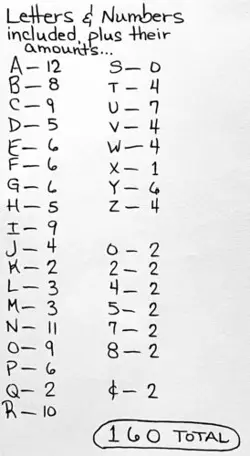 Letters & Numbers
included, plus their
amounts...
A - 12
B - 8
C - 9
D - 5
E - 6
F - 6
G - 6
H - 5
I - 9
J - 4
K - 2
L - 3
M - 3
N - 11
O - 9
P - 6
Q - 2
R - 10
S - 0
T - 4
U - 7
V - 4
W - 4
X - 1
Y - 6
Z - 4
0 - 2
2 - 2
4 - 2
5 - 2
7 - 2
8 - 2
¢ - 2
160 TOTAL